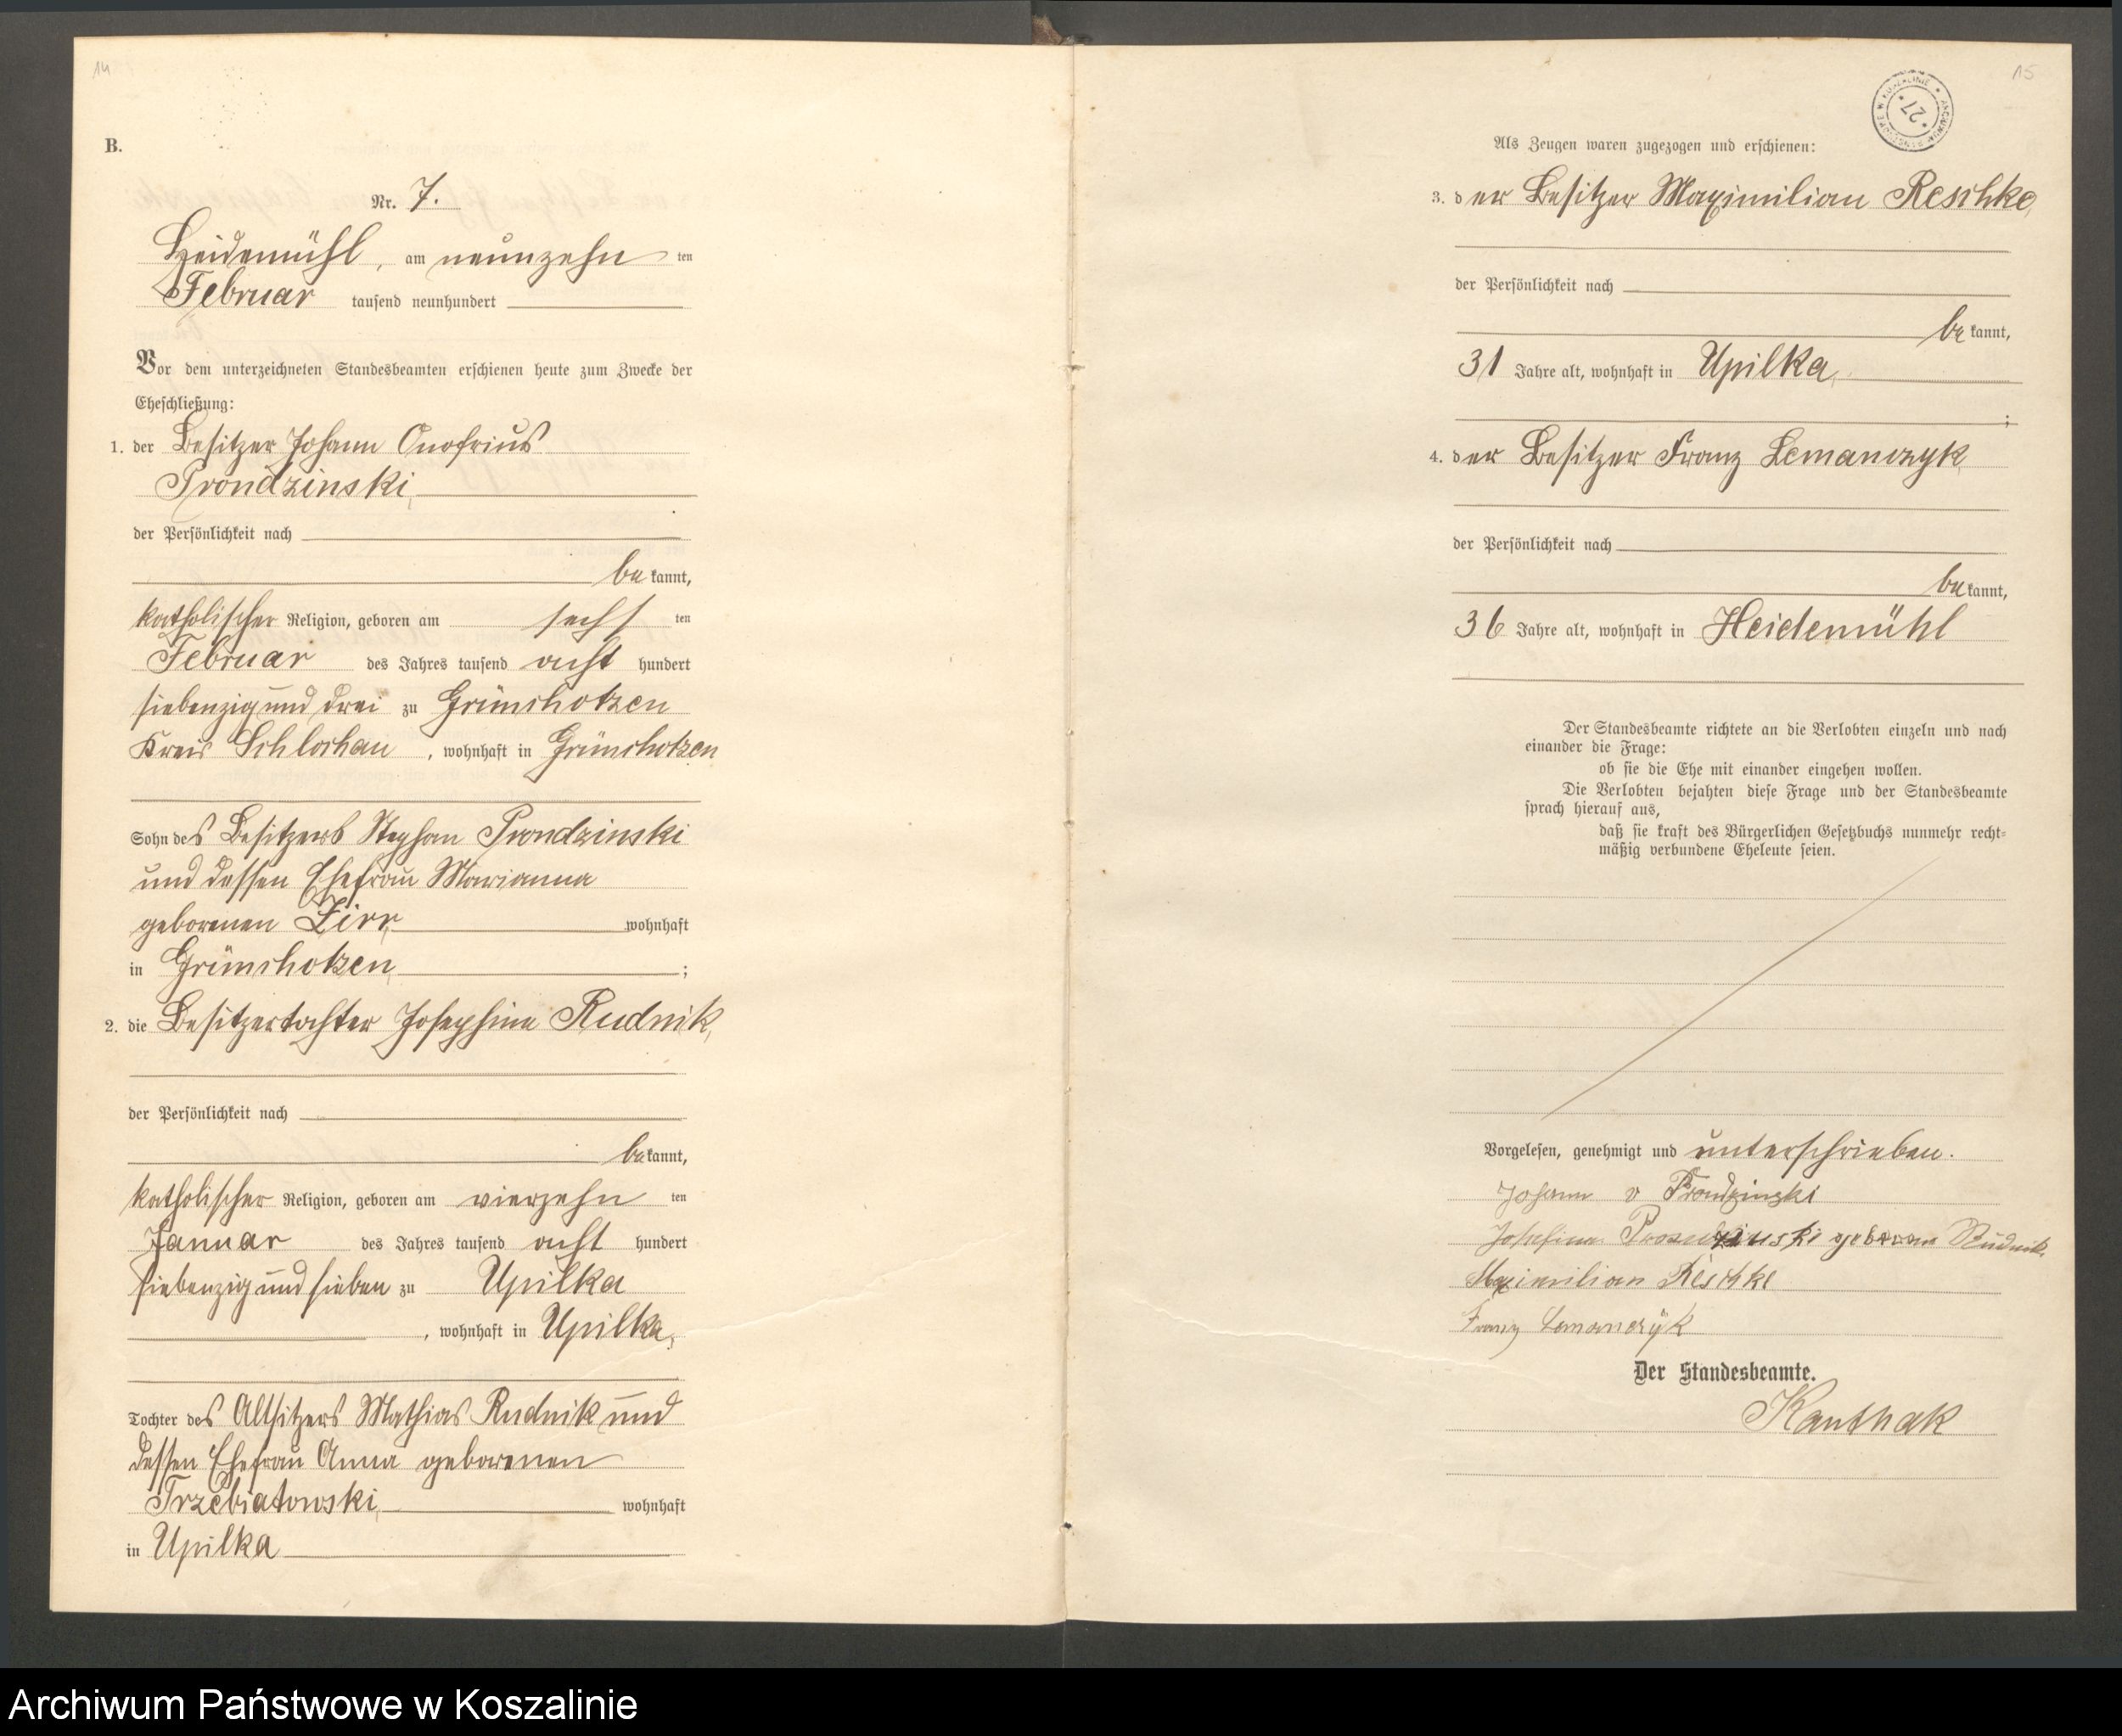 14
B.
Nr. 7.
Heidemühl, am neunzehn ten
Februar tausend neunhundert
Vor dem unterzeichneten Standesbeamten erschienen heute zum Zwecke der
Eheschließung:
1. der Besitzer Johann Onofrius
Prondzinski,
der Persönlichkeit nach
be kannt,
katholischer Religion, geboren am sechs ten
Februar des Jahres tausend acht hundert
siebenzig und drei zu Grünchotzen
Kreis Schlochau, wohnhaft in Grünchotzen
Sohn des Besitzers Stephan Prondzinski
und dessen Ehefrau Marianna
geborenen Zirr wohnhaft
in Grünchotzen ;
2. die Besitzertochter Josephine Rudnik,
der Persönlichkeit nach
be kannt,
katholischer Religion, geboren am vierzehn ten
Januar des Jahres tausend acht hundert
siebenzig und sieben zu Upilka
, wohnhaft in Upilka,
Tochter des Altsitzers Mathias Rudnik und
dessen Ehefrau Anna geborenen
Trzebiatowski, wohnhaft
in Upilka
15
27
Als Zeugen waren zugezogen und erschienen:
3. der Besitzer Maximilian Reschke,
der Persönlichkeit nach
be kannt,
31 Jahre alt, wohnhaft in Upilka,
;
4. der Besitzer Franz Lemanczyk
der Persönlichkeit nach
be kannt,
36 Jahre alt, wohnhaft in Heidemühl
Der Standesbeamte richtete an die Verlobten einzeln und nach
einander die Frage:
ob sie die Ehe mit einander eingehen wollen.
Die Verlobten bejahten diese Frage und der Standesbeamte
sprach hierauf aus,
daß sie kraft des Bürgerlichen Gesetzbuchs nunmehr recht-
mäßig verbundene Eheleute seien.
Vorgelesen, genehmigt und unterschrieben.
Johann v Prondzinski
Josefine Prondzinski geborene Rudnik.
Maximilian Reschke
Franz Lemanczyk
Der Standesbeamte.
Kanthak
Archiwum Państwowe w Koszalinie